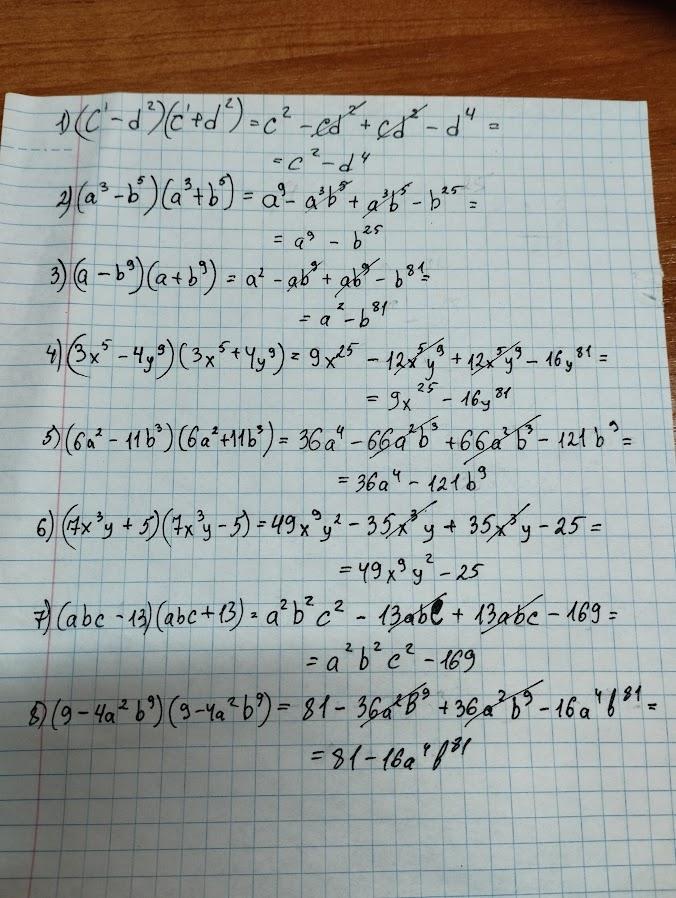 1) (c¹ - d²)(c¹ + d²) = c² - cd² + cd² - d⁴ =
= c² - d⁴
2) (a³ - b⁵)(a³ + b⁵) = a⁹ - a³b⁵ + a³b⁵ - b²⁵ =
= a⁹ - b²⁵
3) (a - b⁹)(a + b⁹) = a² - ab⁹ + ab⁹ - b⁸¹ =
= a² - b⁸¹
4) (3x⁵ - 4y⁹)(3x⁵ + 4y⁹) = 9x²⁵ - 12x⁵y⁹ + 12x⁵y⁹ - 16y⁸¹ =
= 9x²⁵ - 16y⁸¹
5) (6a² - 11b³)(6a² + 11b³) = 36a⁴ - 66a²b³ + 66a²b³ - 121b⁹ =
= 36a⁴ - 121b⁹
6) (7x³y + 5)(7x³y - 5) = 49x⁹y² - 35x³y + 35x³y - 25 =
= 49x⁹y² - 25
7) (abc - 13)(abc + 13) = a²b²c² - 13abc + 13abc - 169 =
= a²b²c² - 169
8) (9 - 4a²b⁹)(9 - 4a²b⁹) = 81 - 36a²b⁹ + 36a²b⁹ - 16a⁴b⁸¹ =
= 81 - 16a⁴b⁸¹